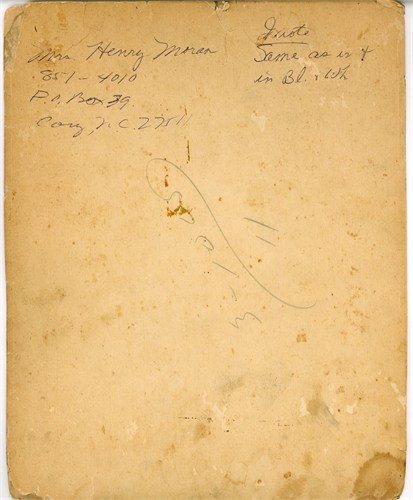 Mrs Henry Moran
851-4010
P.O. Box 39
Cary, N.C. 275
Same as is
in Bl. & Wh
11